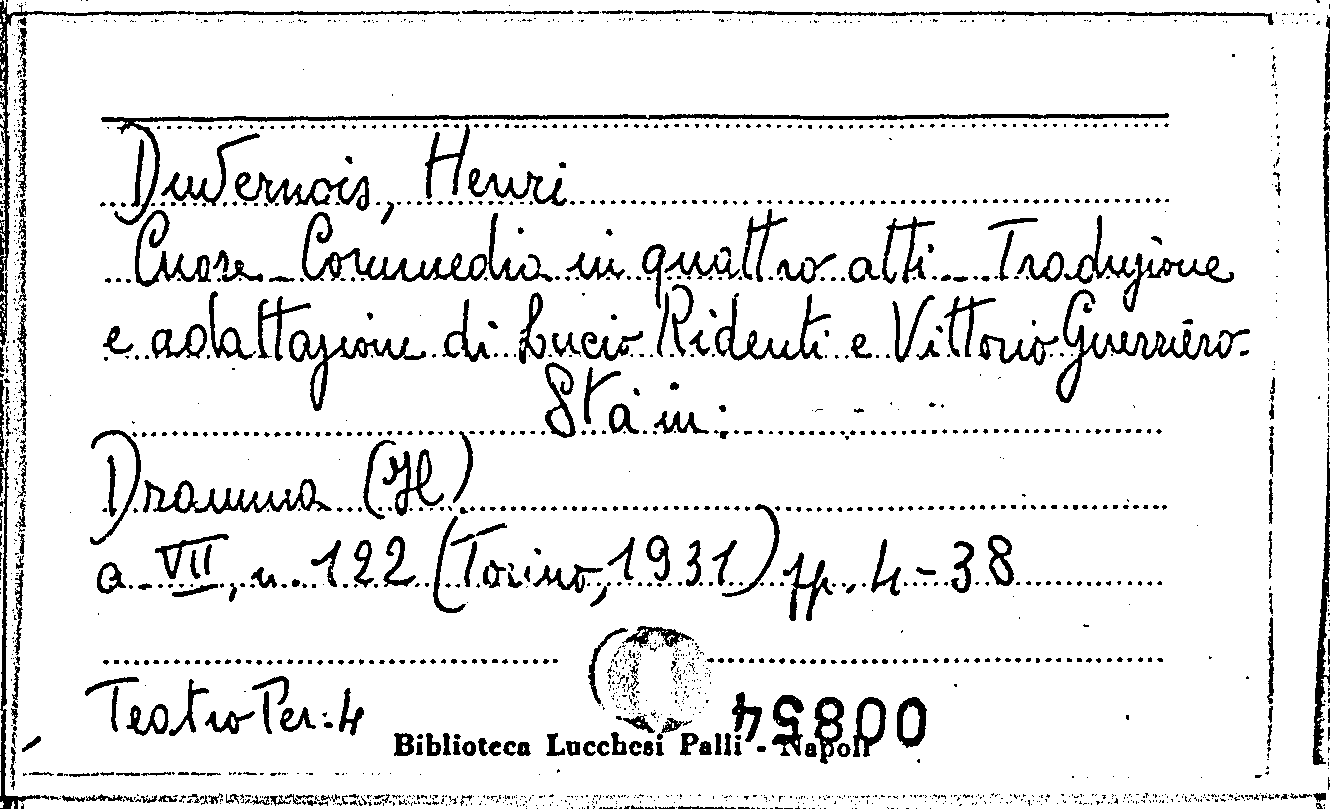 Duvernois, Henri
Cuore - Commedia in quattro atti - Traduzione
e adattazione di Lucio Ridenti e Vittorio Guerriero.
Sta in:
Dramma (Il)
a. VII, n. 122 (Torino, 1931) pp. 4-38
Teatro Per. 4
00854
Biblioteca Lucchesi Palli - Napoli